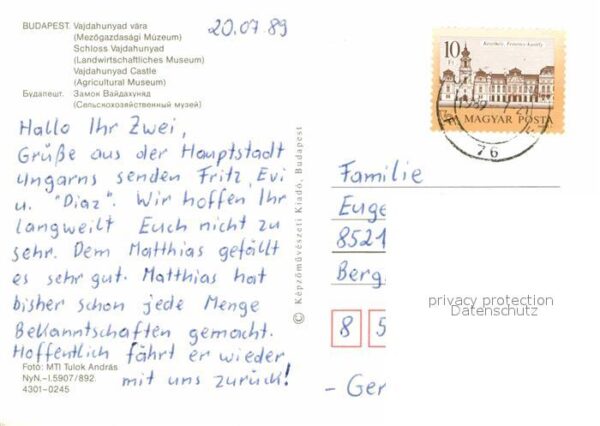 BUDAPEST. Vajdahunyad vára
(Mezőgazdasági Múzeum)
Schloss Vajdahunyad
(Landwirtschaftliches Museum)
Vajdahunyad Castle
(Agricultural Museum)
Будапешт. Замок Вайдахуняд
(Сельскохозяйственный музей)
20.07 89
Hallo Ihr Zwei,
Grüße aus der Hauptstadt
Ungarns senden Fritz, Evi
u. "Diaz". Wir hoffen Ihr
langweilt Euch nicht zu
sehr. Dem Matthias gefällt
es sehr gut. Matthias hat
bisher schon jede Menge
Bekanntschaften gemacht.
Hoffentlich fährt er wieder
mit uns zurück!
Foto: MTI Tulok András
NyN.–I.5907/892
4301–0245
© Képzőművészeti Kiadó, Budapest
10
Keszthely, Festetics-kastély
MAGYAR POSTA
1989
76
Familie
Euge
8521
Berg
8 5
- Ger
privacy protection
Datenschutz